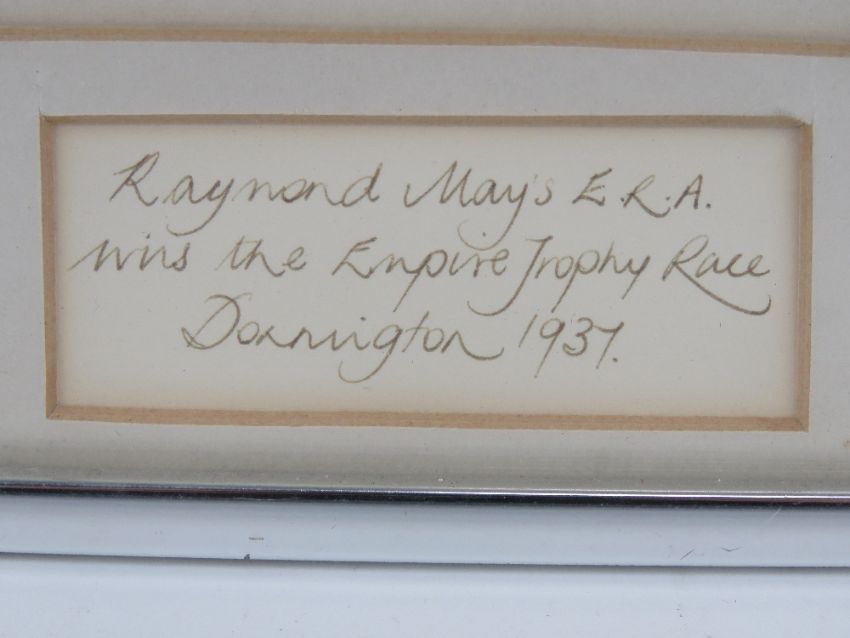 Raymond May's E.R.A.
wins the Empire Trophy Race
Donnington 1937.